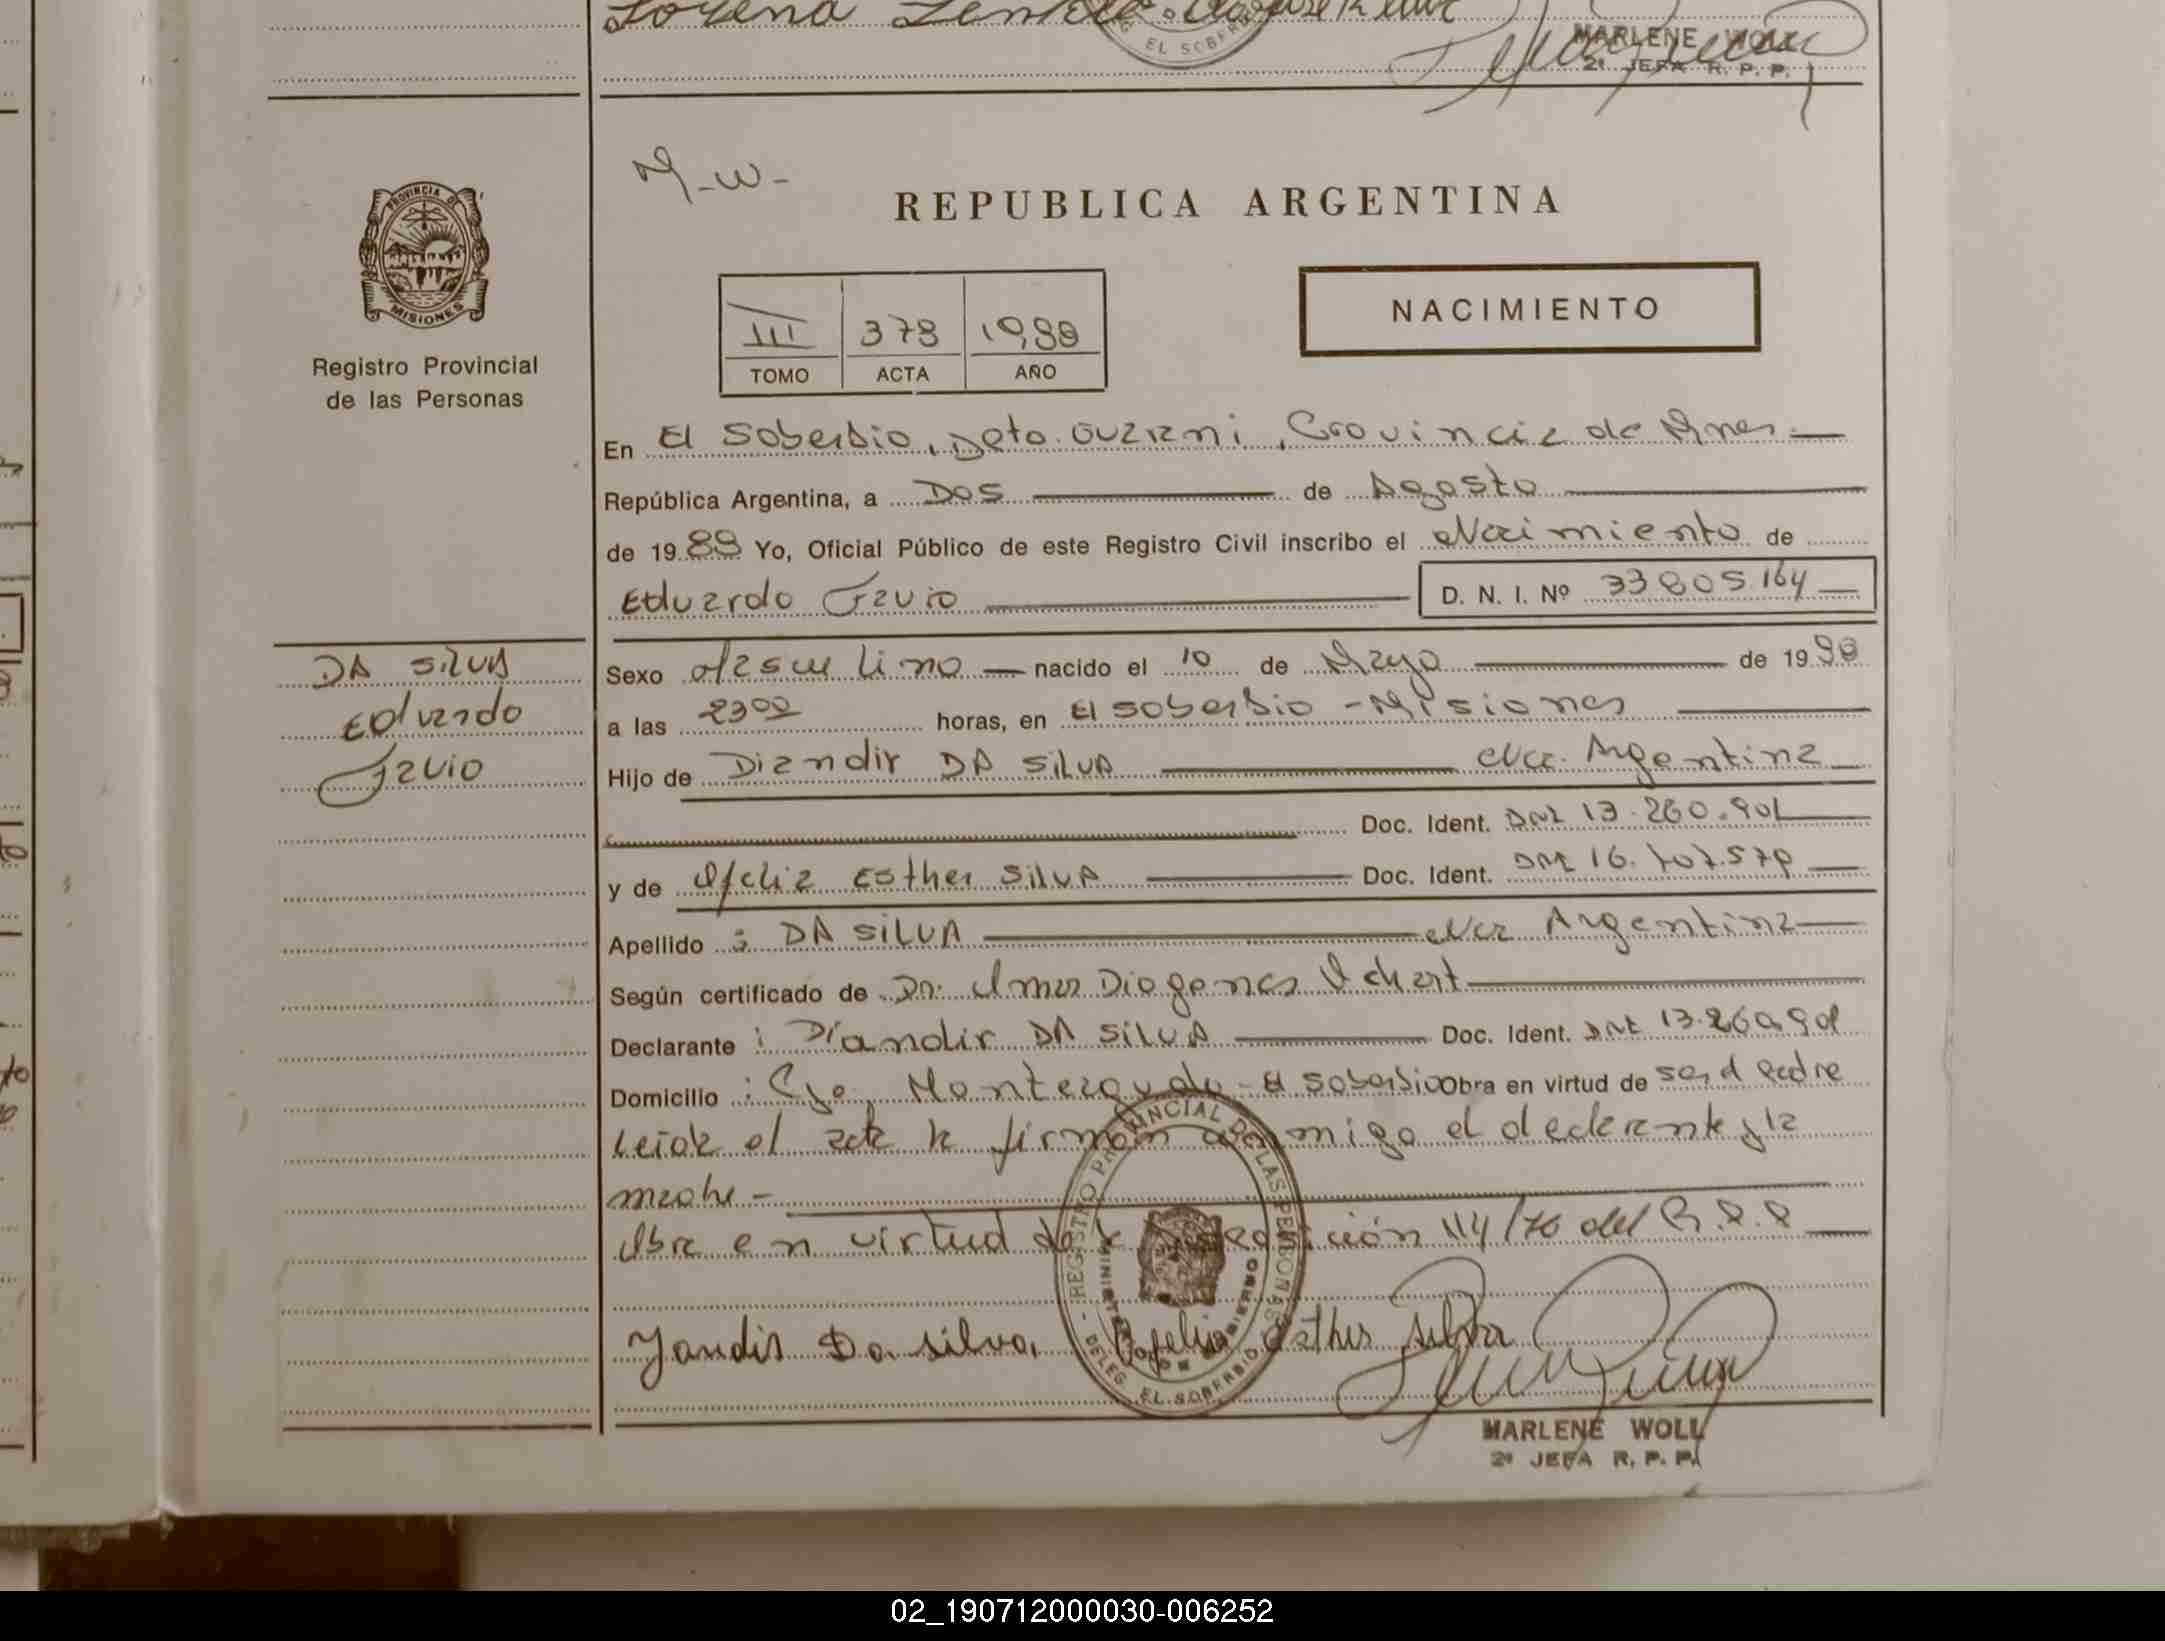 Lorena
EL SOBERBIO
MARLENE WOLL
2ª JEFA R. P. P.
M-W-
REPUBLICA ARGENTINA
PROVINCIA DE
MISIONES
Registro Provincial
de las Personas
NACIMIENTO
III 378
TOMO ACTA AÑO
En El Soberbio, Dpto. Guarani, Provincia de Mnes.
República Argentina, a Dos de Agosto
de 1989 Yo, Oficial Público de este Registro Civil inscribo el Nacimiento de
Eduardo Favio D. N. I. Nº 33.805.164
DA SILVA
Eduardo
Favio
Sexo Masculino nacido el 10 de Mayo de 19
a las 2300 horas, en El Soberbio - Misiones
Hijo de Diandir DA SILVA Nac. Argentina
Doc. Ident. DNI 13.260.901
y de Ofelia Esther SILVA Doc. Ident. DNI 16.
Apellido : DA SILVA Nac Argentina
Según certificado de Dr. Diogenes
Declarante : Diandir DA SILVA Doc. Ident. DNI 13.260.901
Domicilio : Monteagudo - El Soberbio Obra en virtud de ser el Padre
Leida el acta la firman conmigo el declarante y la
madre.-
Obra en virtud de la Disposición 114/76 del R.P.P
REGISTRO PROVINCIAL DE LAS PERSONAS
MINISTERIO DE GOBIERNO
DELEG. EL SOBERBIO
Jandir Da Silva. Ofelia Esther Silva
MARLENE WOLL
2ª JEFA R. P. P.
02_190712000030-006252